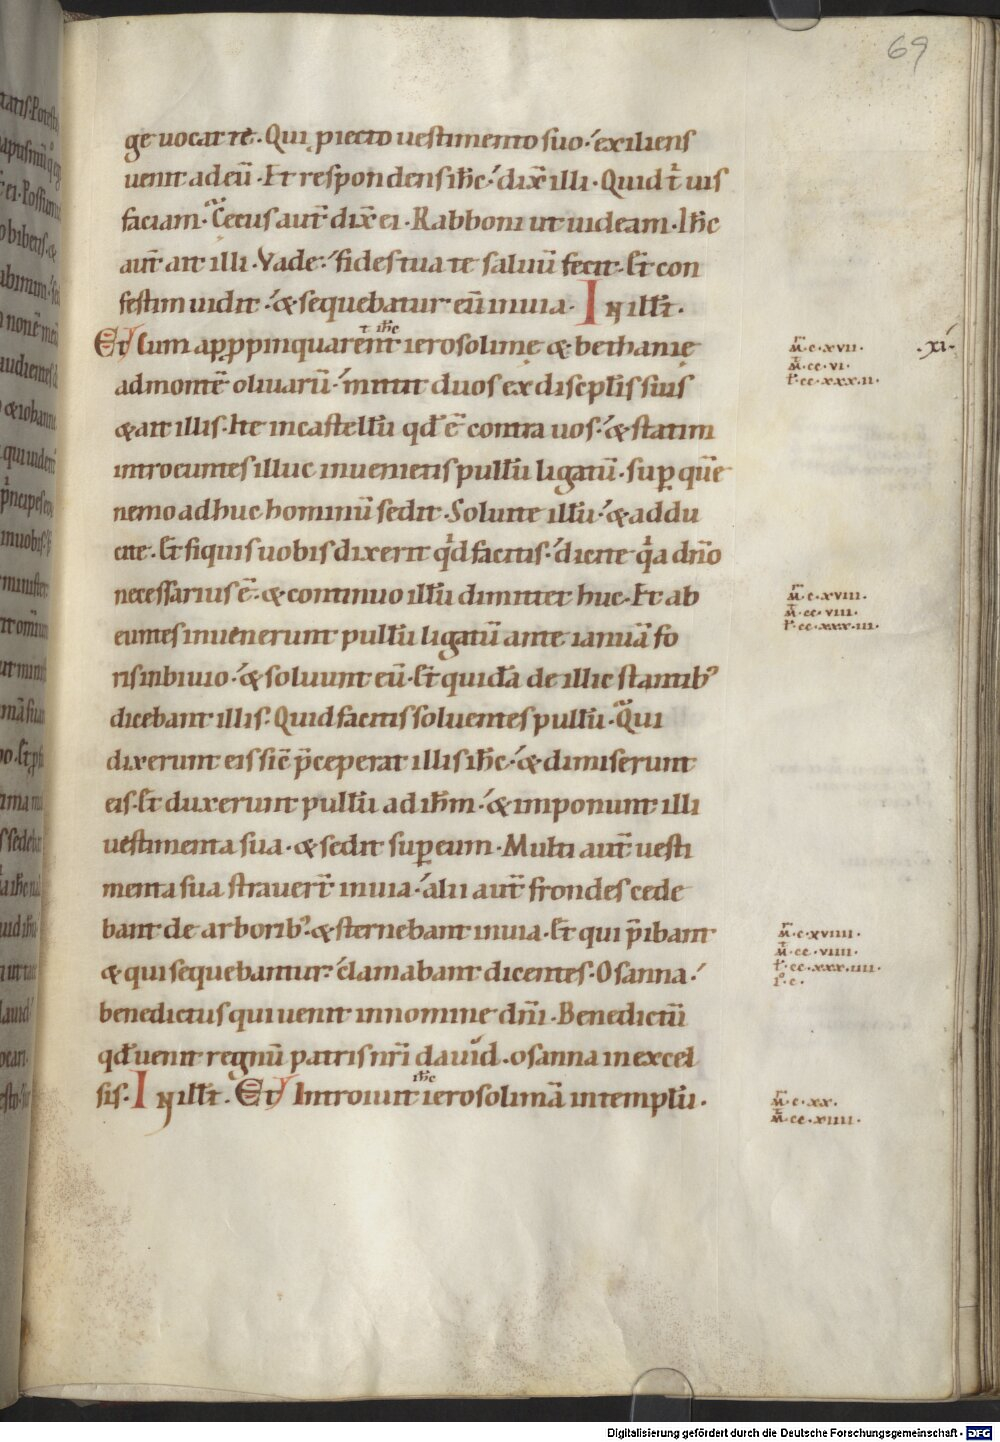 69
ge uocat te. Qui piecto uestimento suo. exiliens
uenit ad eū. Et respondens ih̄c. dix̄ illi. Quid t̄ uis
faciam. Cecus aut̄ dix̄ ei. Rabboni ut uideam. Ih̄c
aut̄ ait illi. Vade. fides tua te saluū fecit. Et con
festim uidit. & sequebatur eū in uia. In ill̄t.
Et Cum appropinquarent ierosolime & bethanie
t ih̄c
ad montē oliuarū. mittit duos ex discipl̄is suis
& ait illis. Ite in castell̄u qd̄ ē contra uos. & statim
introeuntes illuc inuenietis pull̄u ligatū. sup quē
nemo adhuc hominū sedit. Soluite ill̄u. & addu
cite. Et si quis uobis dixerit qd facitis. dicite qa dn̄o
necessarius ē. & continuo ill̄u dimittet huc. Et ab
euntes inuenerunt pull̄u ligatū ante ianuā fo
ris in biuio. & soluunt eū. Et quidā de illic stantib;
dicebant illis. Quid facitis soluentes pull̄u. Qui
dixerunt eis sic̄ p̄ceperat illis ih̄c. & dimiserunt
eis. Et duxerunt pull̄u ad ih̄m. & imponunt illi
uestimenta sua. & sedit sup eum. Multi aut̄ uesti
menta sua strauert̄ in uia. alii aut̄ frondes cede
bant de arborib;. & sternebant in uia. Et qui p̄ibant
& qui sequebantur. clamabant dicentes. Osanna.
benedictus qui uenit in nomine dn̄i. Benedictū
qd̄ uenit regnū patris nr̄i dauid. osanna in excel
sis. In ill̄t. Et Introiuit ierosolimā in templ̄u.
ih̄c
m̄.c.xvii.
.xi.
m̄.cc.vi.
l̄.cc.xxx.ii.
m̄.c.xviii.
m̄.cc.viii.
l̄.cc.xxx.iii.
m̄.c.xviiii.
m̄.cc.viiii.
l̄.cc.xxx.iiii.
i.c.
m̄.c.xx.
m̄.cc.xiiii.
Digitalisierung gefördert durch die Deutsche Forschungsgemeinschaft - DFG